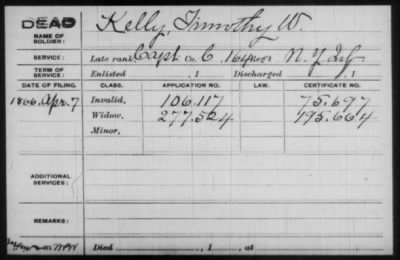 DEAD
NAME OF SOLDIER: Kelly, Timothy W.
SERVICE: Late rank, Capt Co. C, 164 Reg't N.Y. Inf
TERM OF SERVICE: Enlisted , 1 Discharged , 1
DATE OF FILING. CLASS. APPLICATION NO. LAW. CERTIFICATE NO.
1866, Apr. 7 Invalid, 106.117 75.697
Widow, 277.524 195.664
Minor,
ADDITIONAL SERVICES:
REMARKS:
Died , 1 , at